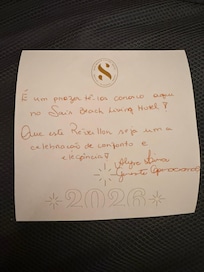 S
É um prazer tê-los conosco aqui
no Sai's Beach Living Hotel!
Que este Réveillon seja uma
celebração de conforto e
elegância!
Gerente Operacional
2026